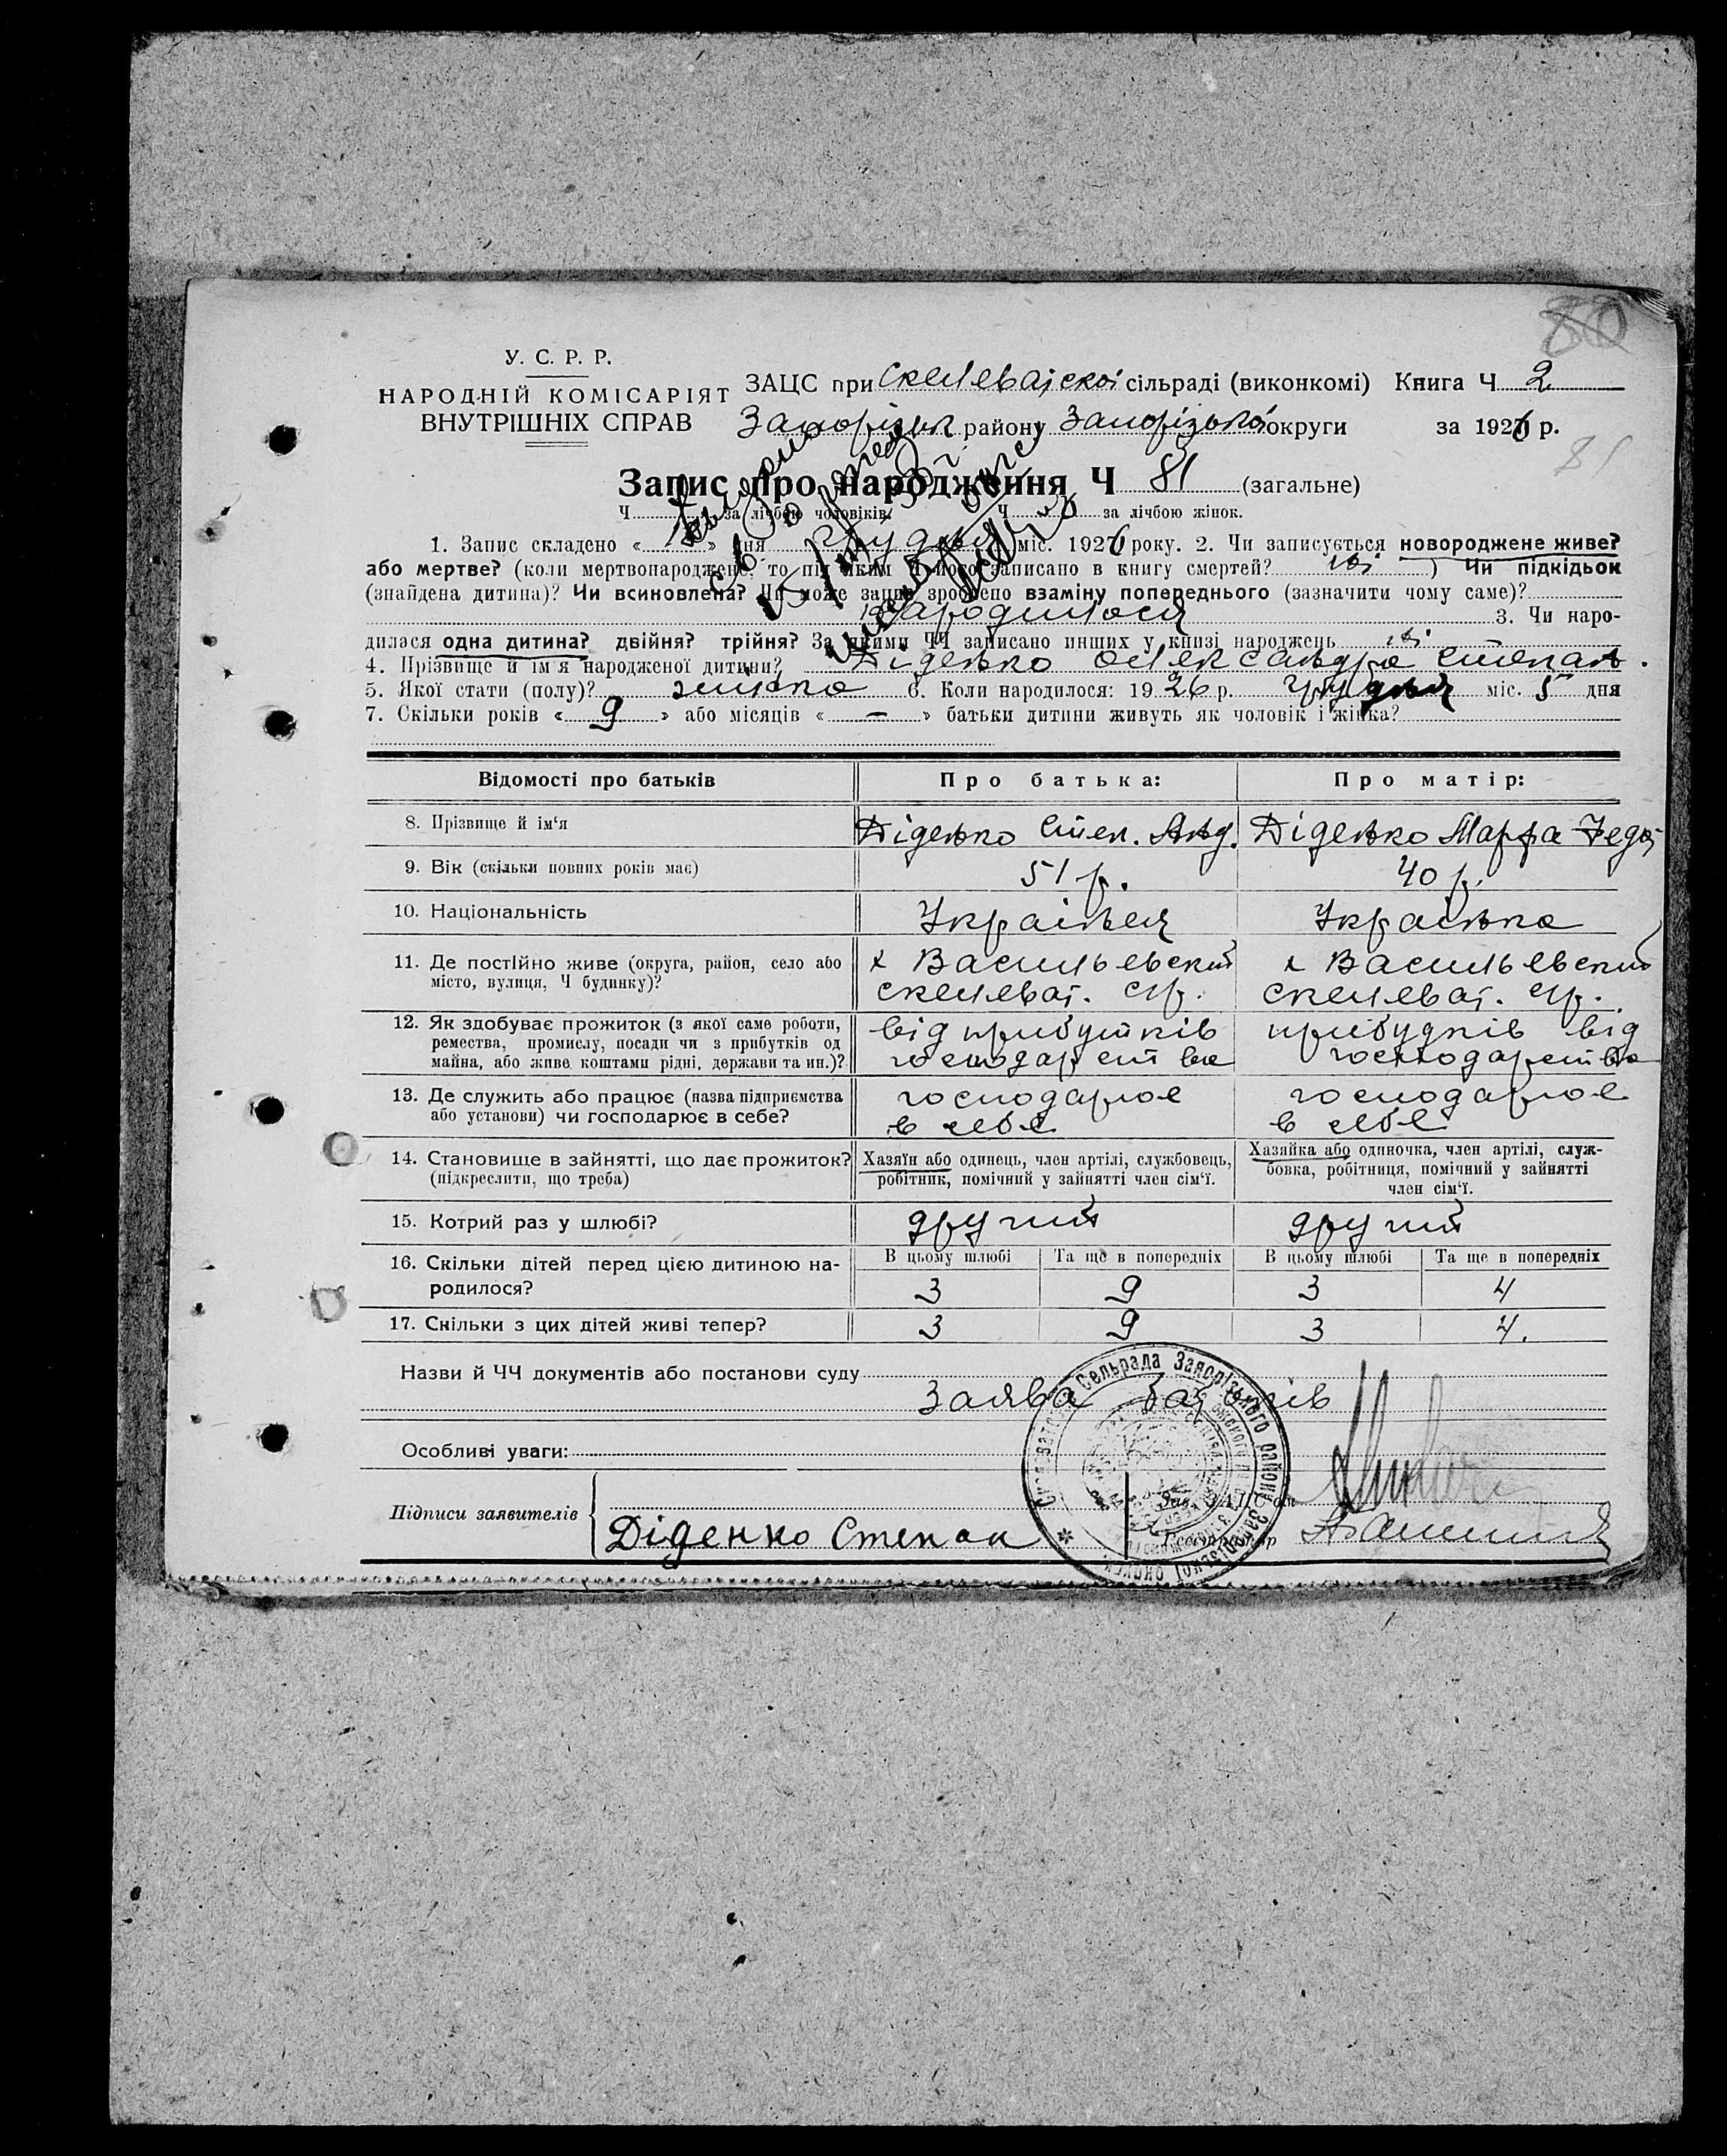 80
У. С. Р. Р.
НАРОДНІЙ КОМІСАРІЯТ
ВНУТРІШНІХ СПРАВ
ЗАЦС при Скелеватскої сільраді (виконкомі) Книга Ч 2
Запорізьк району Запорізької округи за 1926 р.
81
Запис про народження Ч 81 (загальне)
Ч за лічбою чоловіків. Ч за лічбою жінок.
1. Запис складено « » дня Грудня міс. 1926 року. 2. Чи записується новороджене живе?
або мертве? (коли мертвонароджене, то під яким Ч його записано в книгу смертей? ні ) Чи підкідьок
(знайдена дитина)? Чи всиновлена? Чи може запис зроблено взаміну попереднього (зазначити чому саме)?
народилося 3. Чи наро-
дилася одна дитина? двійня? трійня? За якими ЧЧ записано инших у книзі народжень ні
4. Прізвище й ім'я народженої дитини? Діденко Олександра Степан.
5. Якої стати (полу)? жінка 6. Коли народилося: 1926 р. Грудня міс. 5 дня
7. Скільки років « 9 » або місяців « — » батьки дитини живуть як чоловік і жінка?
Відомості про батьків Про батька: Про матір:
8. Прізвище й ім'я Діденко Степ. Анд. Діденко Марфа Федо
9. Вік (скільки повних років має) 51 р. 40 р.
10. Національність Українця Українка
11. Де постійно живе (округа, район, село або х Васильевский х Васильевский
місто, вулиця, Ч будинку)? Скелеват. с/р. Скелеват. с/р.
12. Як здобуває прожиток (з якої саме роботи, від прибутків прибудків від
ремества, промислу, посади чи з прибутків од
майна, або живе коштами рідні, держави та ин.)? господарства господарства
13. Де служить або працює (назва підприємства господарює господарює
або установи) чи господарює в себе? в себе в себе
14. Становище в зайнятті, що дає прожиток? Хазяїн або одинець, член артілі, службовець, Хазяйка або одиночка, член артілі, служ-
(підкреслити, що треба) робітник, помічний у зайнятті член сім'ї. бовка, робітниця, помічний у зайнятті
член сім'ї.
15. Котрий раз у шлюбі? другий другий
В цьому шлюбі Та ще в попередніх В цьому шлюбі Та ще в попередніх
16. Скільки дітей перед цією дитиною на-
родилося? 3 9 3 4
17. Скільки з цих дітей живі тепер? 3 9 3 4.
Назви й ЧЧ документів або постанови суду
Заява батьків
Особливі уваги:
Підписи заявителів
Діденко Степан
Зав. ЗАЦС'ом
Сельрада Запорізького району Запорізької округи